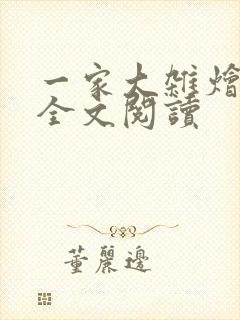 一家大雜燴
全文閱讀
董麗邊